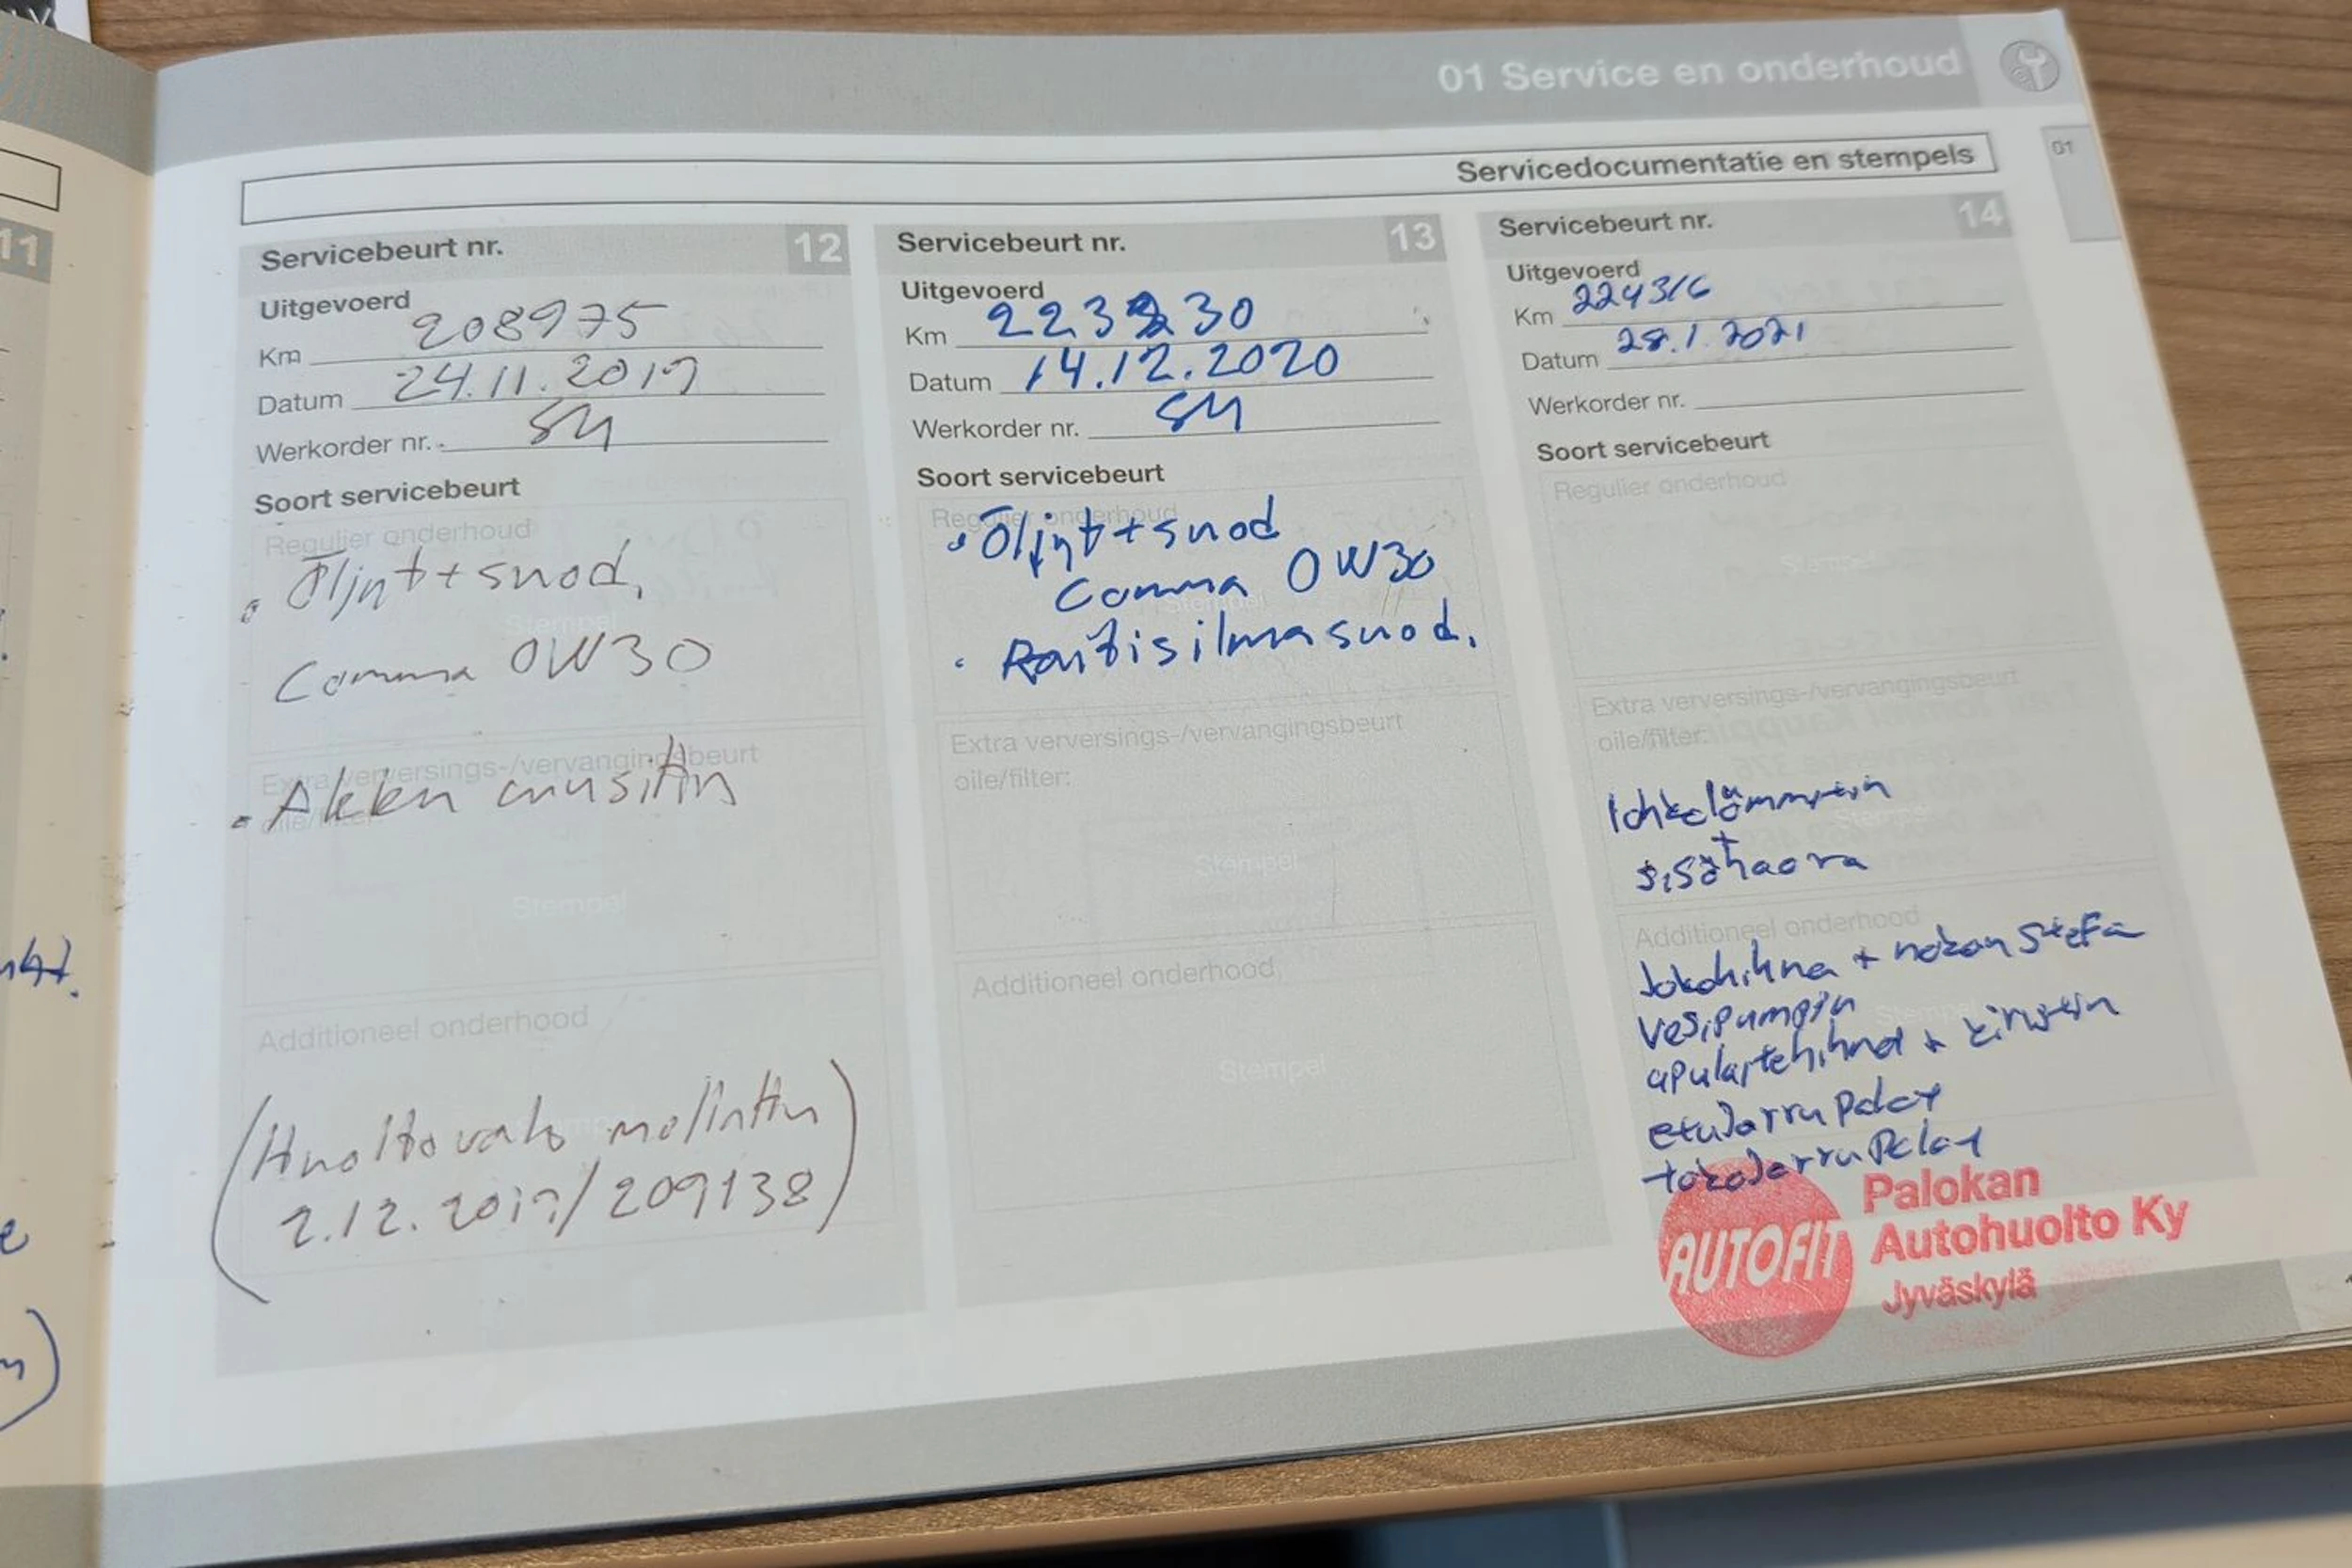 01 Service en onderhoud
01
Servicedocumentatie en stempels
11
Servicebeurt nr. 12
Uitgevoerd
Km 208975
Datum 24.11.2019
Werkorder nr. SM
Soort servicebeurt
Regulier onderhoud
• Öljyt + suod.
Stempel
Comma 0W30
Extra verversings-/vervangingsbeurt
olie/filter:
• Akku uusittiin
Stempel
Additioneel onderhood
(Huoltovalo nollattiin
2.12.2019/209138)
Servicebeurt nr. 13
Uitgevoerd
Km 223230
Datum 14.12.2020
Werkorder nr. SM
Soort servicebeurt
Regulier onderhoud
• Öljyt + suod
Comma 0W30
Stempel
• Raitisilmasuod.
Extra verversings-/vervangingsbeurt
oile/filter:
Stempel
Additioneel onderhood
Stempel
Servicebeurt nr. 14
Uitgevoerd
Km 224316
Datum 28.1.2021
Werkorder nr.
Soort servicebeurt
Regulier onderhoud
Stempel
Extra verversings-/vervangingsbeurt
oile/filter:
lohkolämmitin
+
sisähaara
Additioneel onderhood
Jakohihna + nokan stefa
vesipumppu
apulaitehihnat + kiristin
etujarrupalat
takajarrupalat
AUTOFIT
Palokan
Autohuolto Ky
Jyväskylä